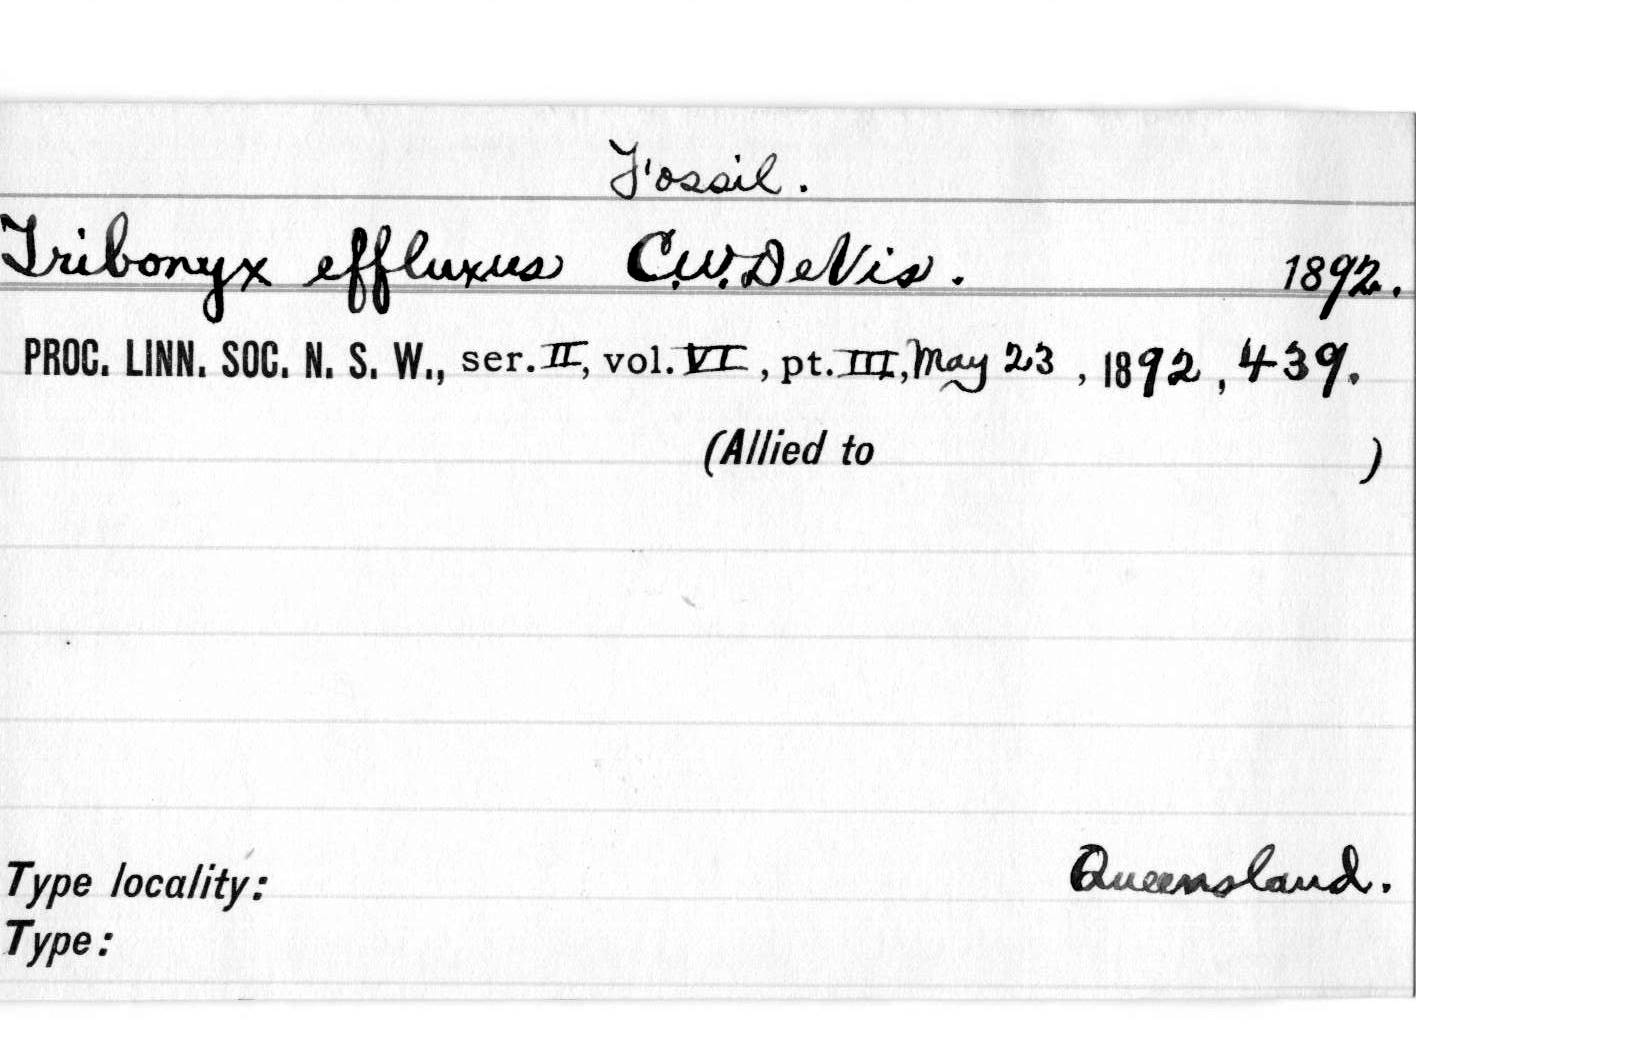 Fossil.
Tribonyx effluxus C.W. De Vis. 1892.
PROC. LINN. SOC. N. S. W., ser. II, vol. VI, pt. III, May 23, 1892, 439.
(Allied to )
Type locality: Queensland.
Type: